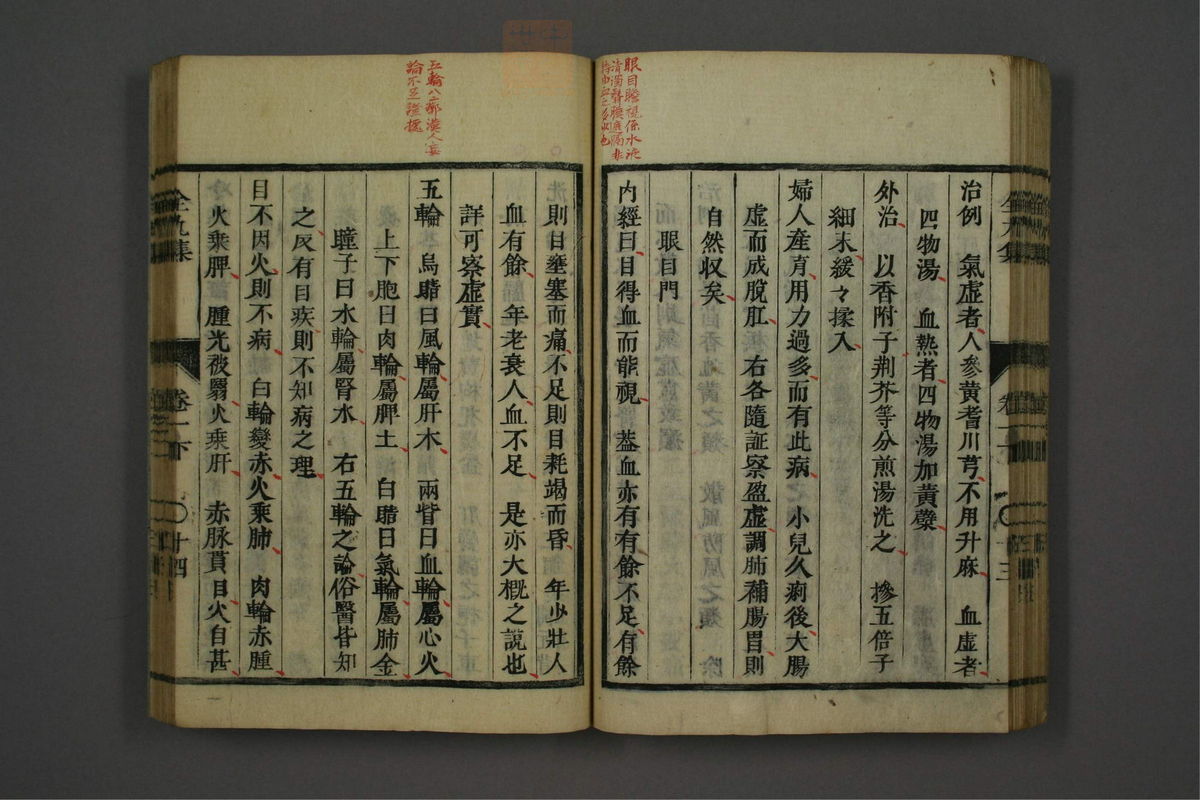 眼目瞻視係水液
治例　氣虛者人參黃耆川芎不用升麻　血虛者
四物湯　血熱者四物湯加黃蘗
外治　以香附子荆芥等分煎湯洗之　摻五倍子
細末緩々揉入
婦人産育用力過多而有此病　小兒久痢後大腸
虛而成脫肛　右各隨証察盈虛調肺補腸胃則
自然収矣
眼目門
内經曰目得血而能視　葢血亦有有餘不足有餘
五輪八廓漢人妄
論不足證據
則目壅塞而痛不足則目耗竭而昏　年少壯人
血有餘　年老衰人血不足　是亦大概之說也
詳可察虛實
五輪　烏睛曰風輪屬肝木　兩眥曰血輪屬心火
上下胞曰肉輪屬脾土　白睛曰氣輪屬肺金
瞳子曰水輪屬腎水　右五輪之論俗醫皆知
之反有目疾則不知病之理
目不因火則不病　白輪變赤火乘肺　肉輪赤腫
火乘脾　腫光被翳火乘肝　赤脉貫目火自甚
全九集
卷一下
十四